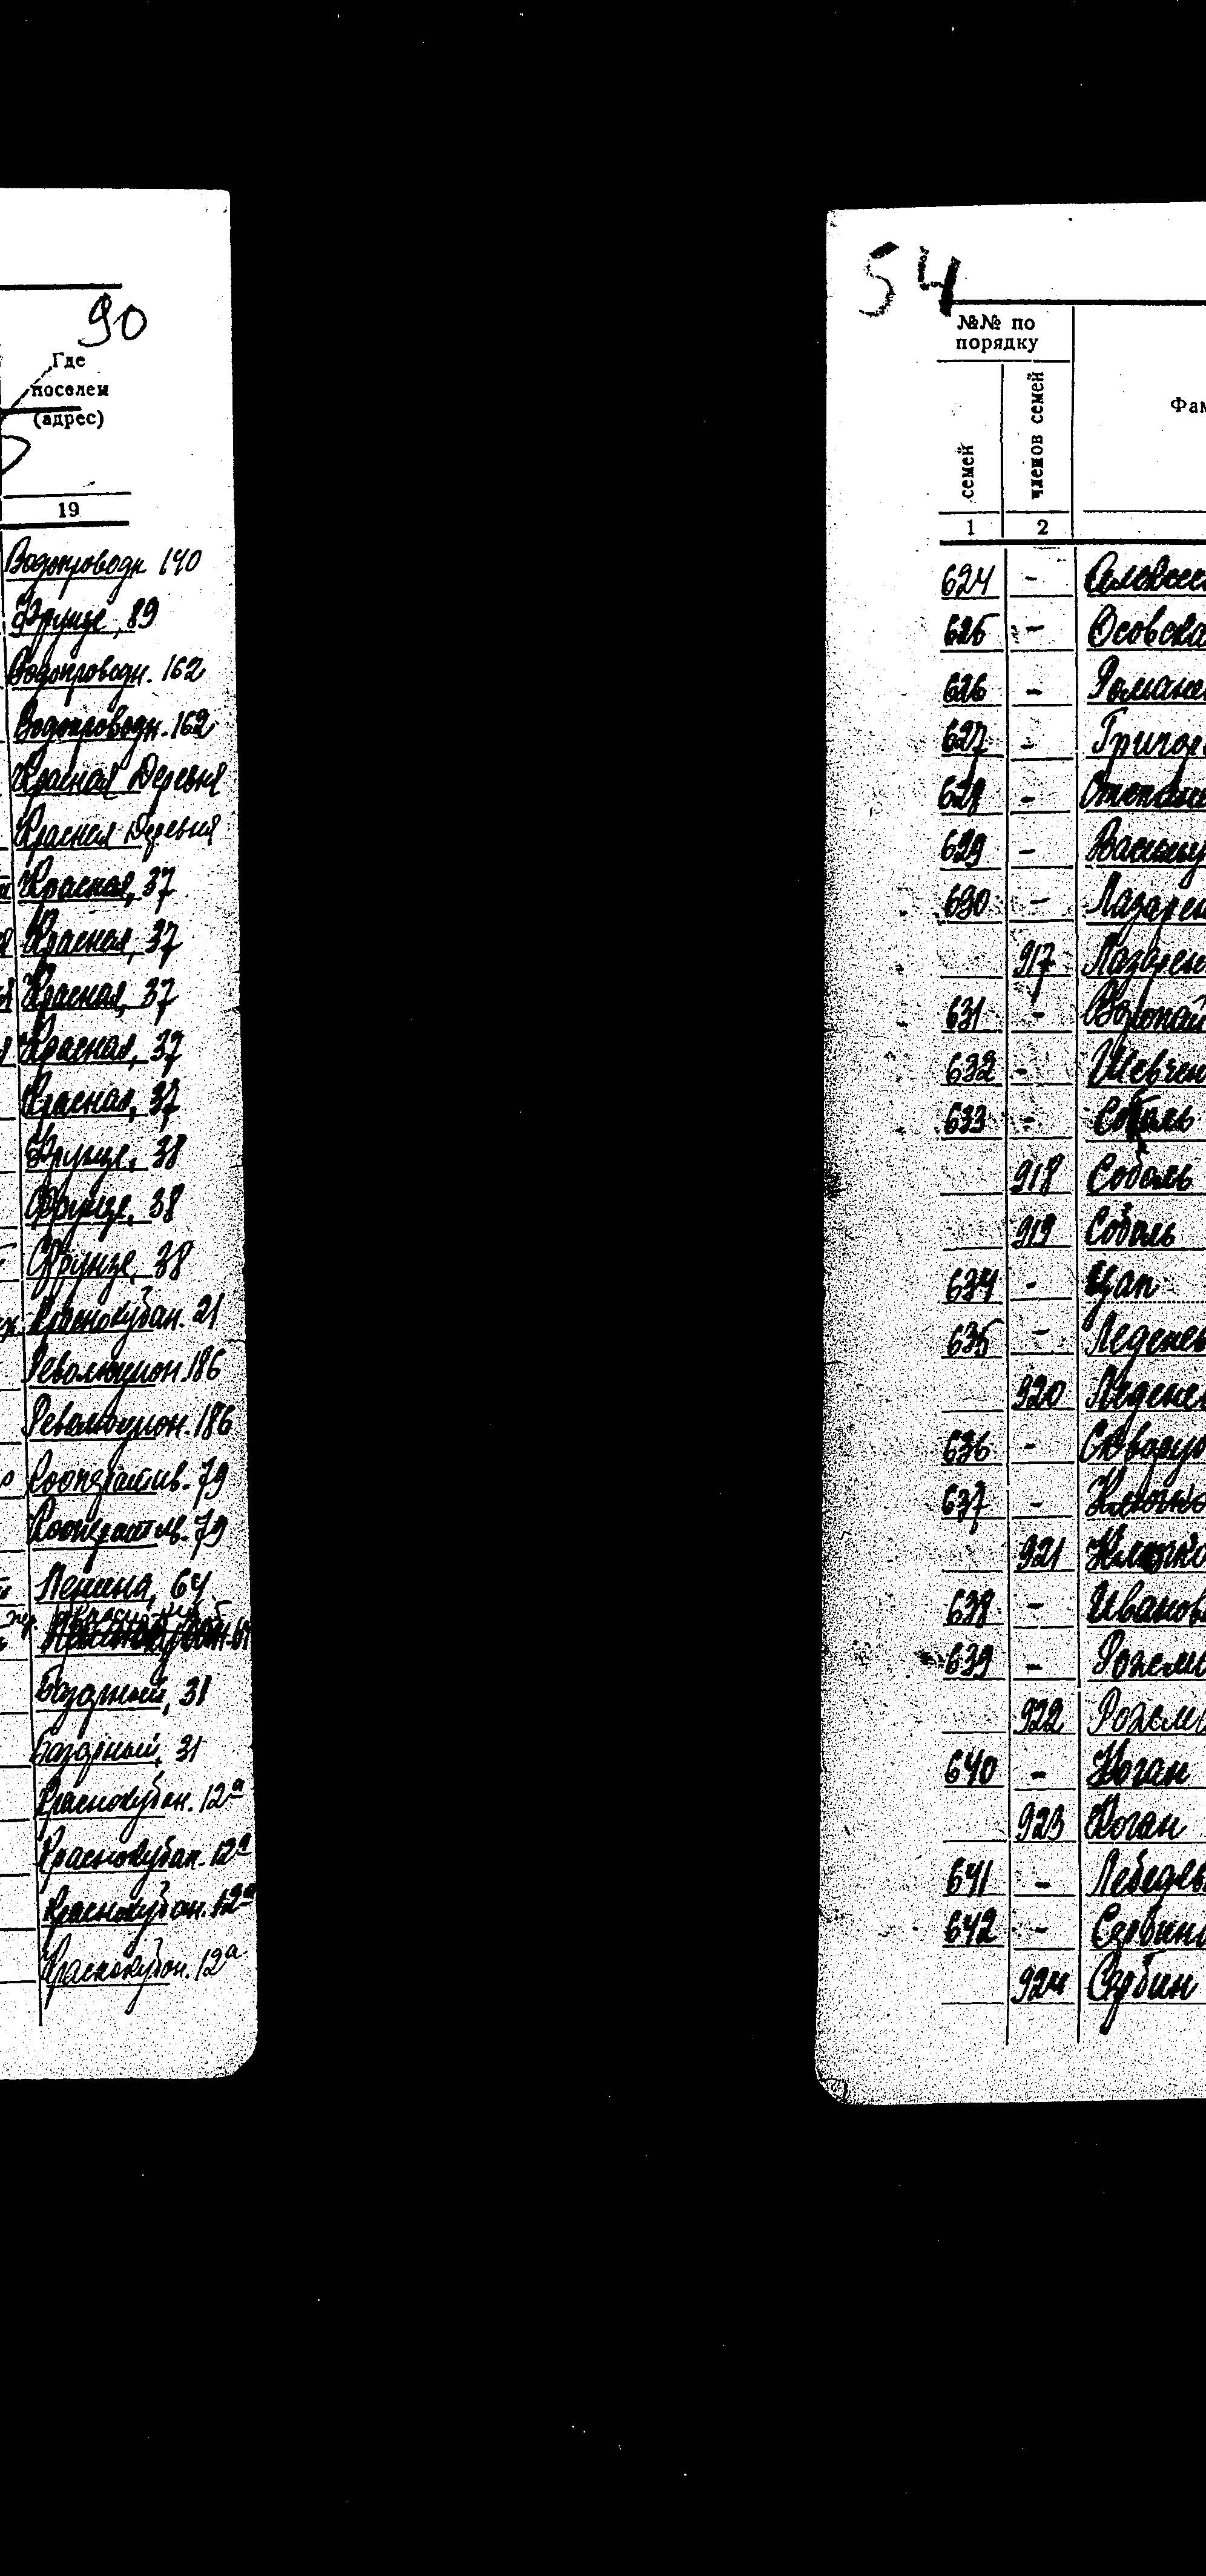 90
Где
поселен
(адрес)
19
Водопроводн 140
Фрунзе, 89
Водопроводн. 162
Водопроводн. 162
Красная Деревня
Красная Деревня
Красная, 37
Красная, 37
Красная, 37
Красная, 37
Красная, 37
Фрунзе, 38
Фрунзе, 38
Фрунзе, 38
Краснокубан. 21
Революцион. 186
Революцион. 186
Кооператив. 79
Кооператив. 79
Ленина, 64
Базарный, 31
Базарный, 31
Краснокубан. 12а
Краснокубан. 12а
Краснокубан. 12а
Краснокубан. 12а
54
№№ по
порядку
семей
членов семей
Фам
1 2
624 -
625 - Осовска
626 - Романе
627 - Григор
628 - Степане
629 -
630 - Лазарен
917 Лазарен
631 - Воропай
632 - Шевчен
633 - Соболь
918 Соболь
919 Соболь
634 - Цап
635 - Леденев
920 Леденев
636 -
637 - Клочко
921 Клочко
638 - Иванов
639 -
922
640 - Коган
923 Коган
641 - Лебедев
642 - Сербин
924 Сербин